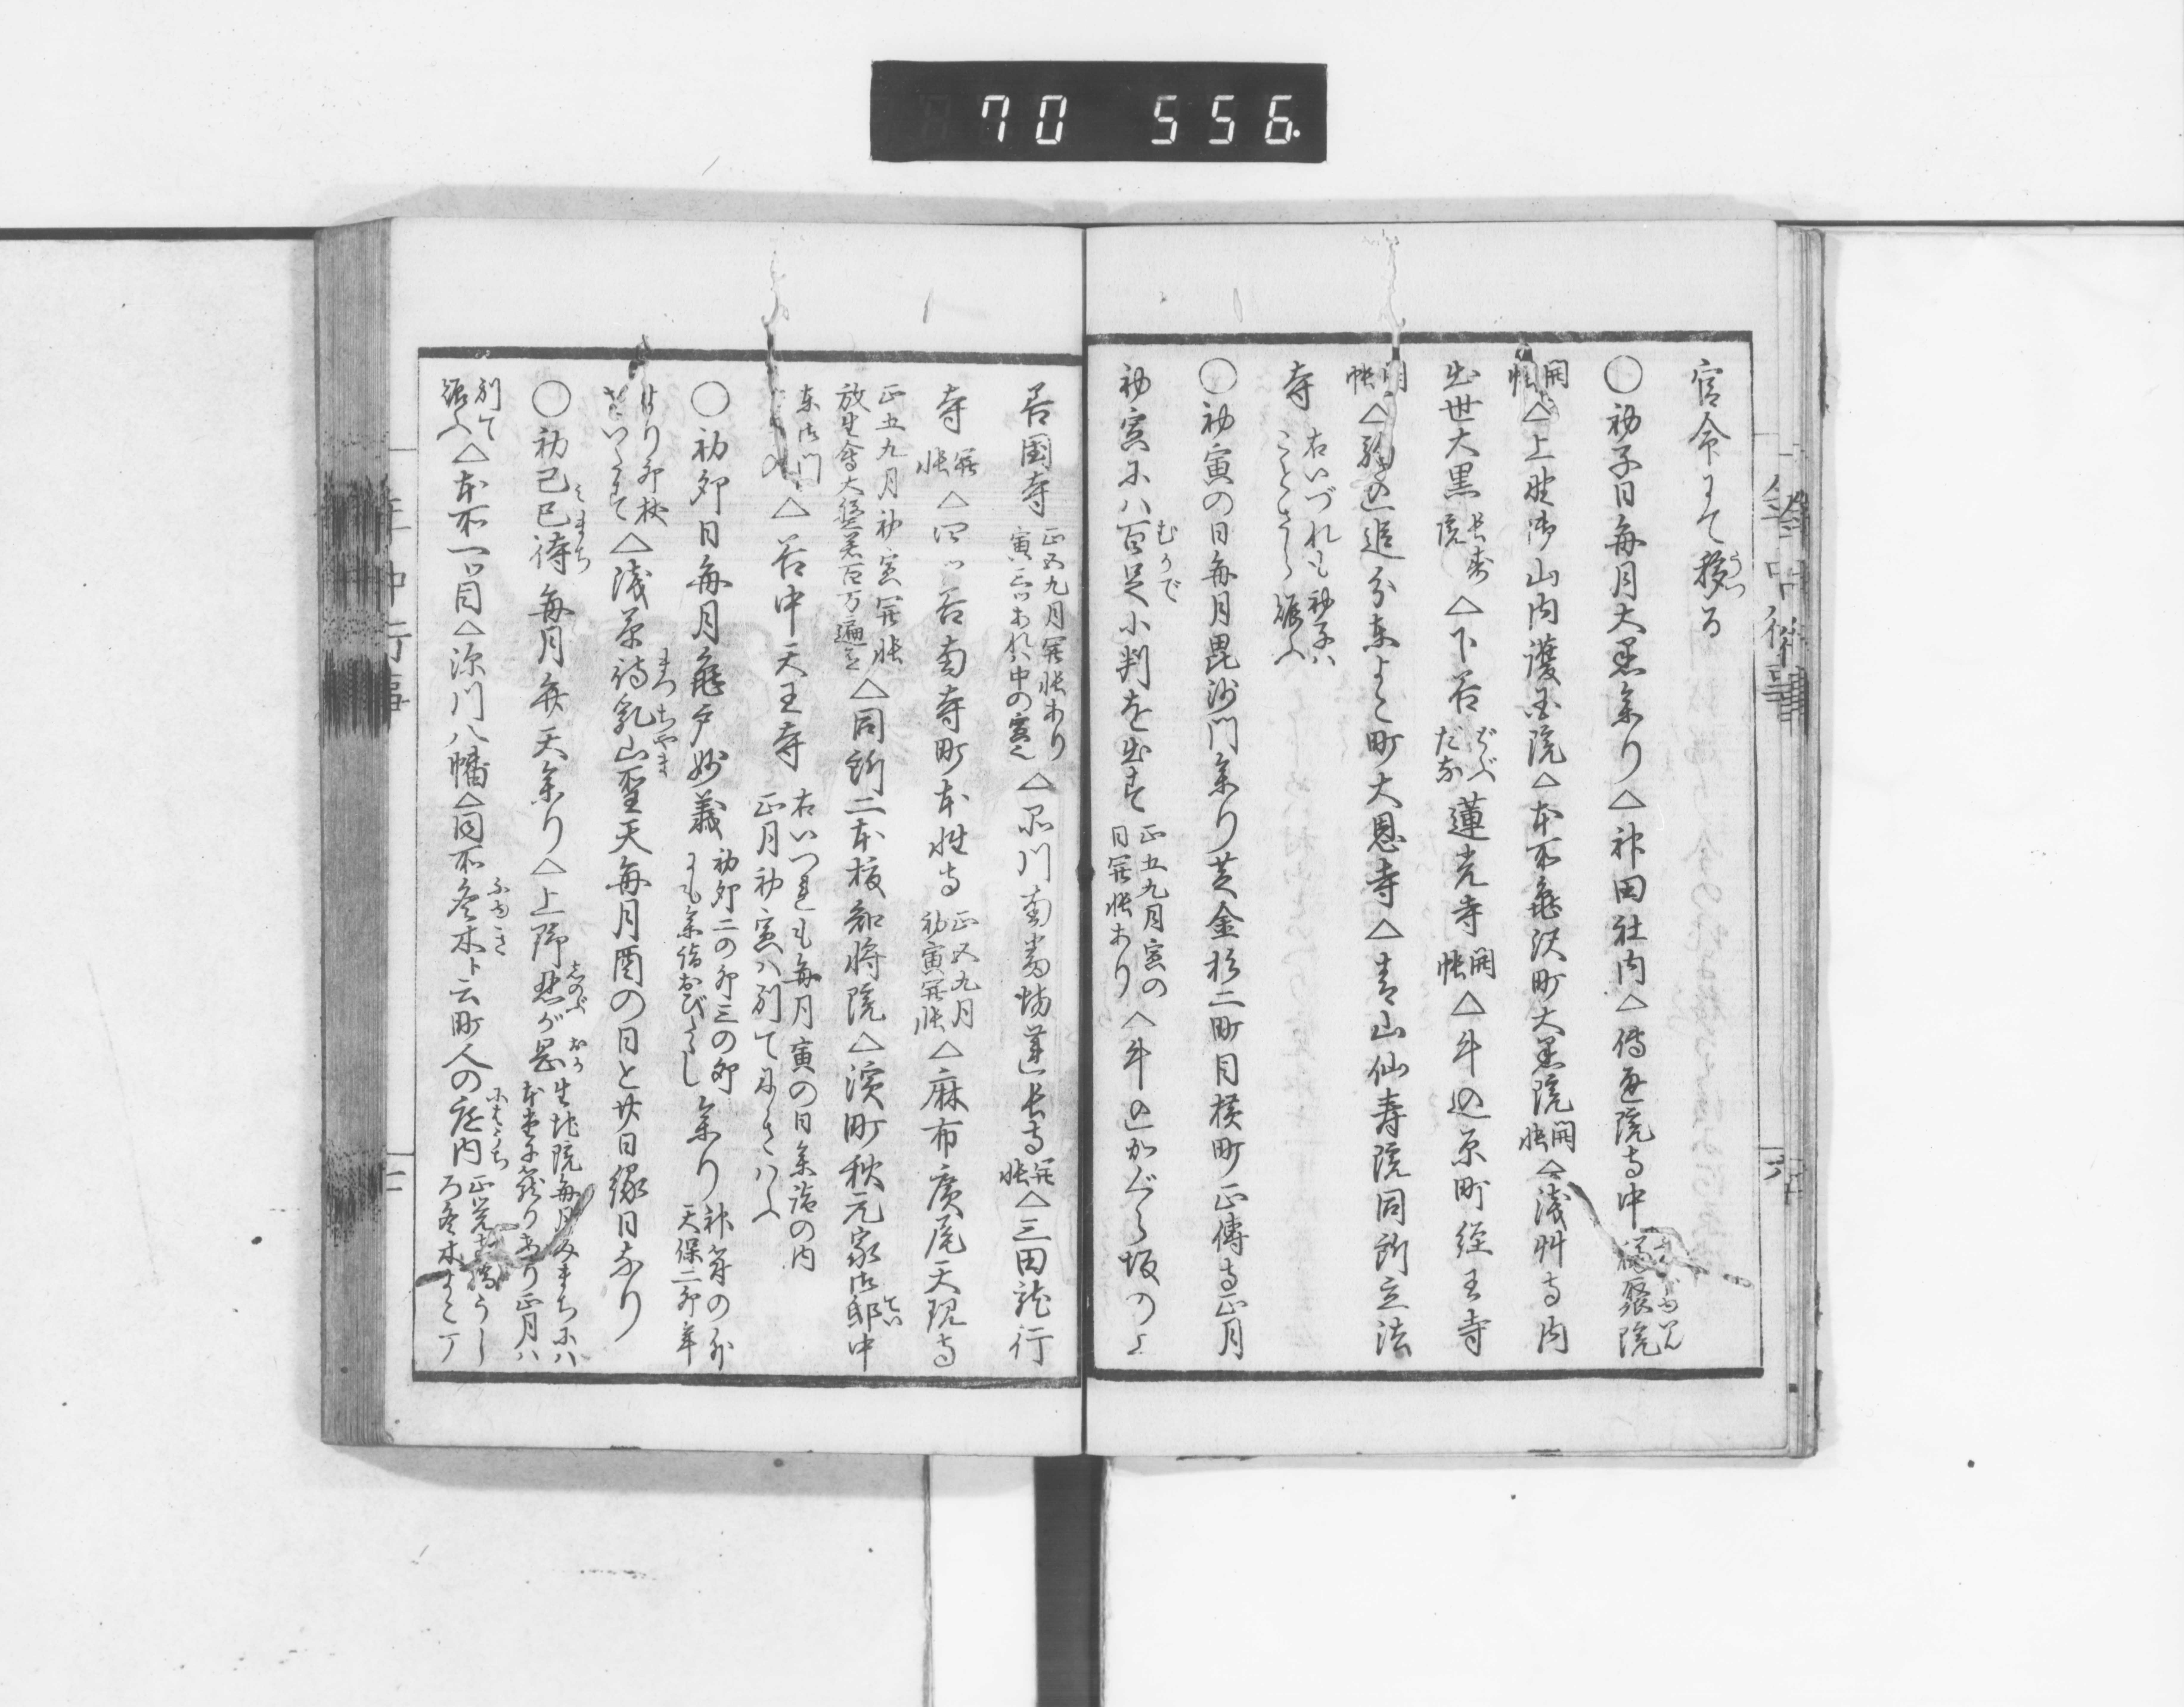 70 556
官令にて移る
○初子日毎月大黒参り△神田社内△傳通院寺中福聚院
開帳△上野御山内護国院△本所亀沢町大黒院開帳△浅艸寺内
出世大黒長寿院△下谷ぢぶだな蓮光寺開帳△牛込原町経王寺
開帳△駒込追分東よこ町大恩寺△青山仙寿院同所立法
寺右いづれも初子ハことさら賑ふ
○初寅の日毎月毘沙門参り芝金杉二町目横町正傳寺正月
初寅にハ百足小判を出す正五九月寅の日開帳あり△牛込かぐら坂の上
善国寺正五九月開帳あり寅三ツあれハ中の寅也△品川南番場蓮長寺開帳△三田龍行
寺開帳△四ツ谷南寺町本性寺正五九月初寅開帳△麻布廣尾天現寺
正五九月初寅開帳放生會大盤若百万遍△同所二本榎知将院△濱町秋元家御邸中
東御門△谷中天王寺右いつれも毎月寅の日参詣の内正月初寅ハ別てにきはふ
○初卯日毎月亀戸妙義初卯二の卯三の卯にも参詣おびたゝし参り神符の外天保二卯年
より卯杖をいだす△浅草待乳山聖天毎月酉の日と廿日縁日なり
○初己巳待毎月弁天参り△上野忍が岡生池院毎月みまちにハ本堂に籠りあり正月ハ
別て賑ふ△本所一ツ目△深川八幡△同所冬木ト云町人の庭内正覚寺橋うしろ冬木よこ丁
年中行事